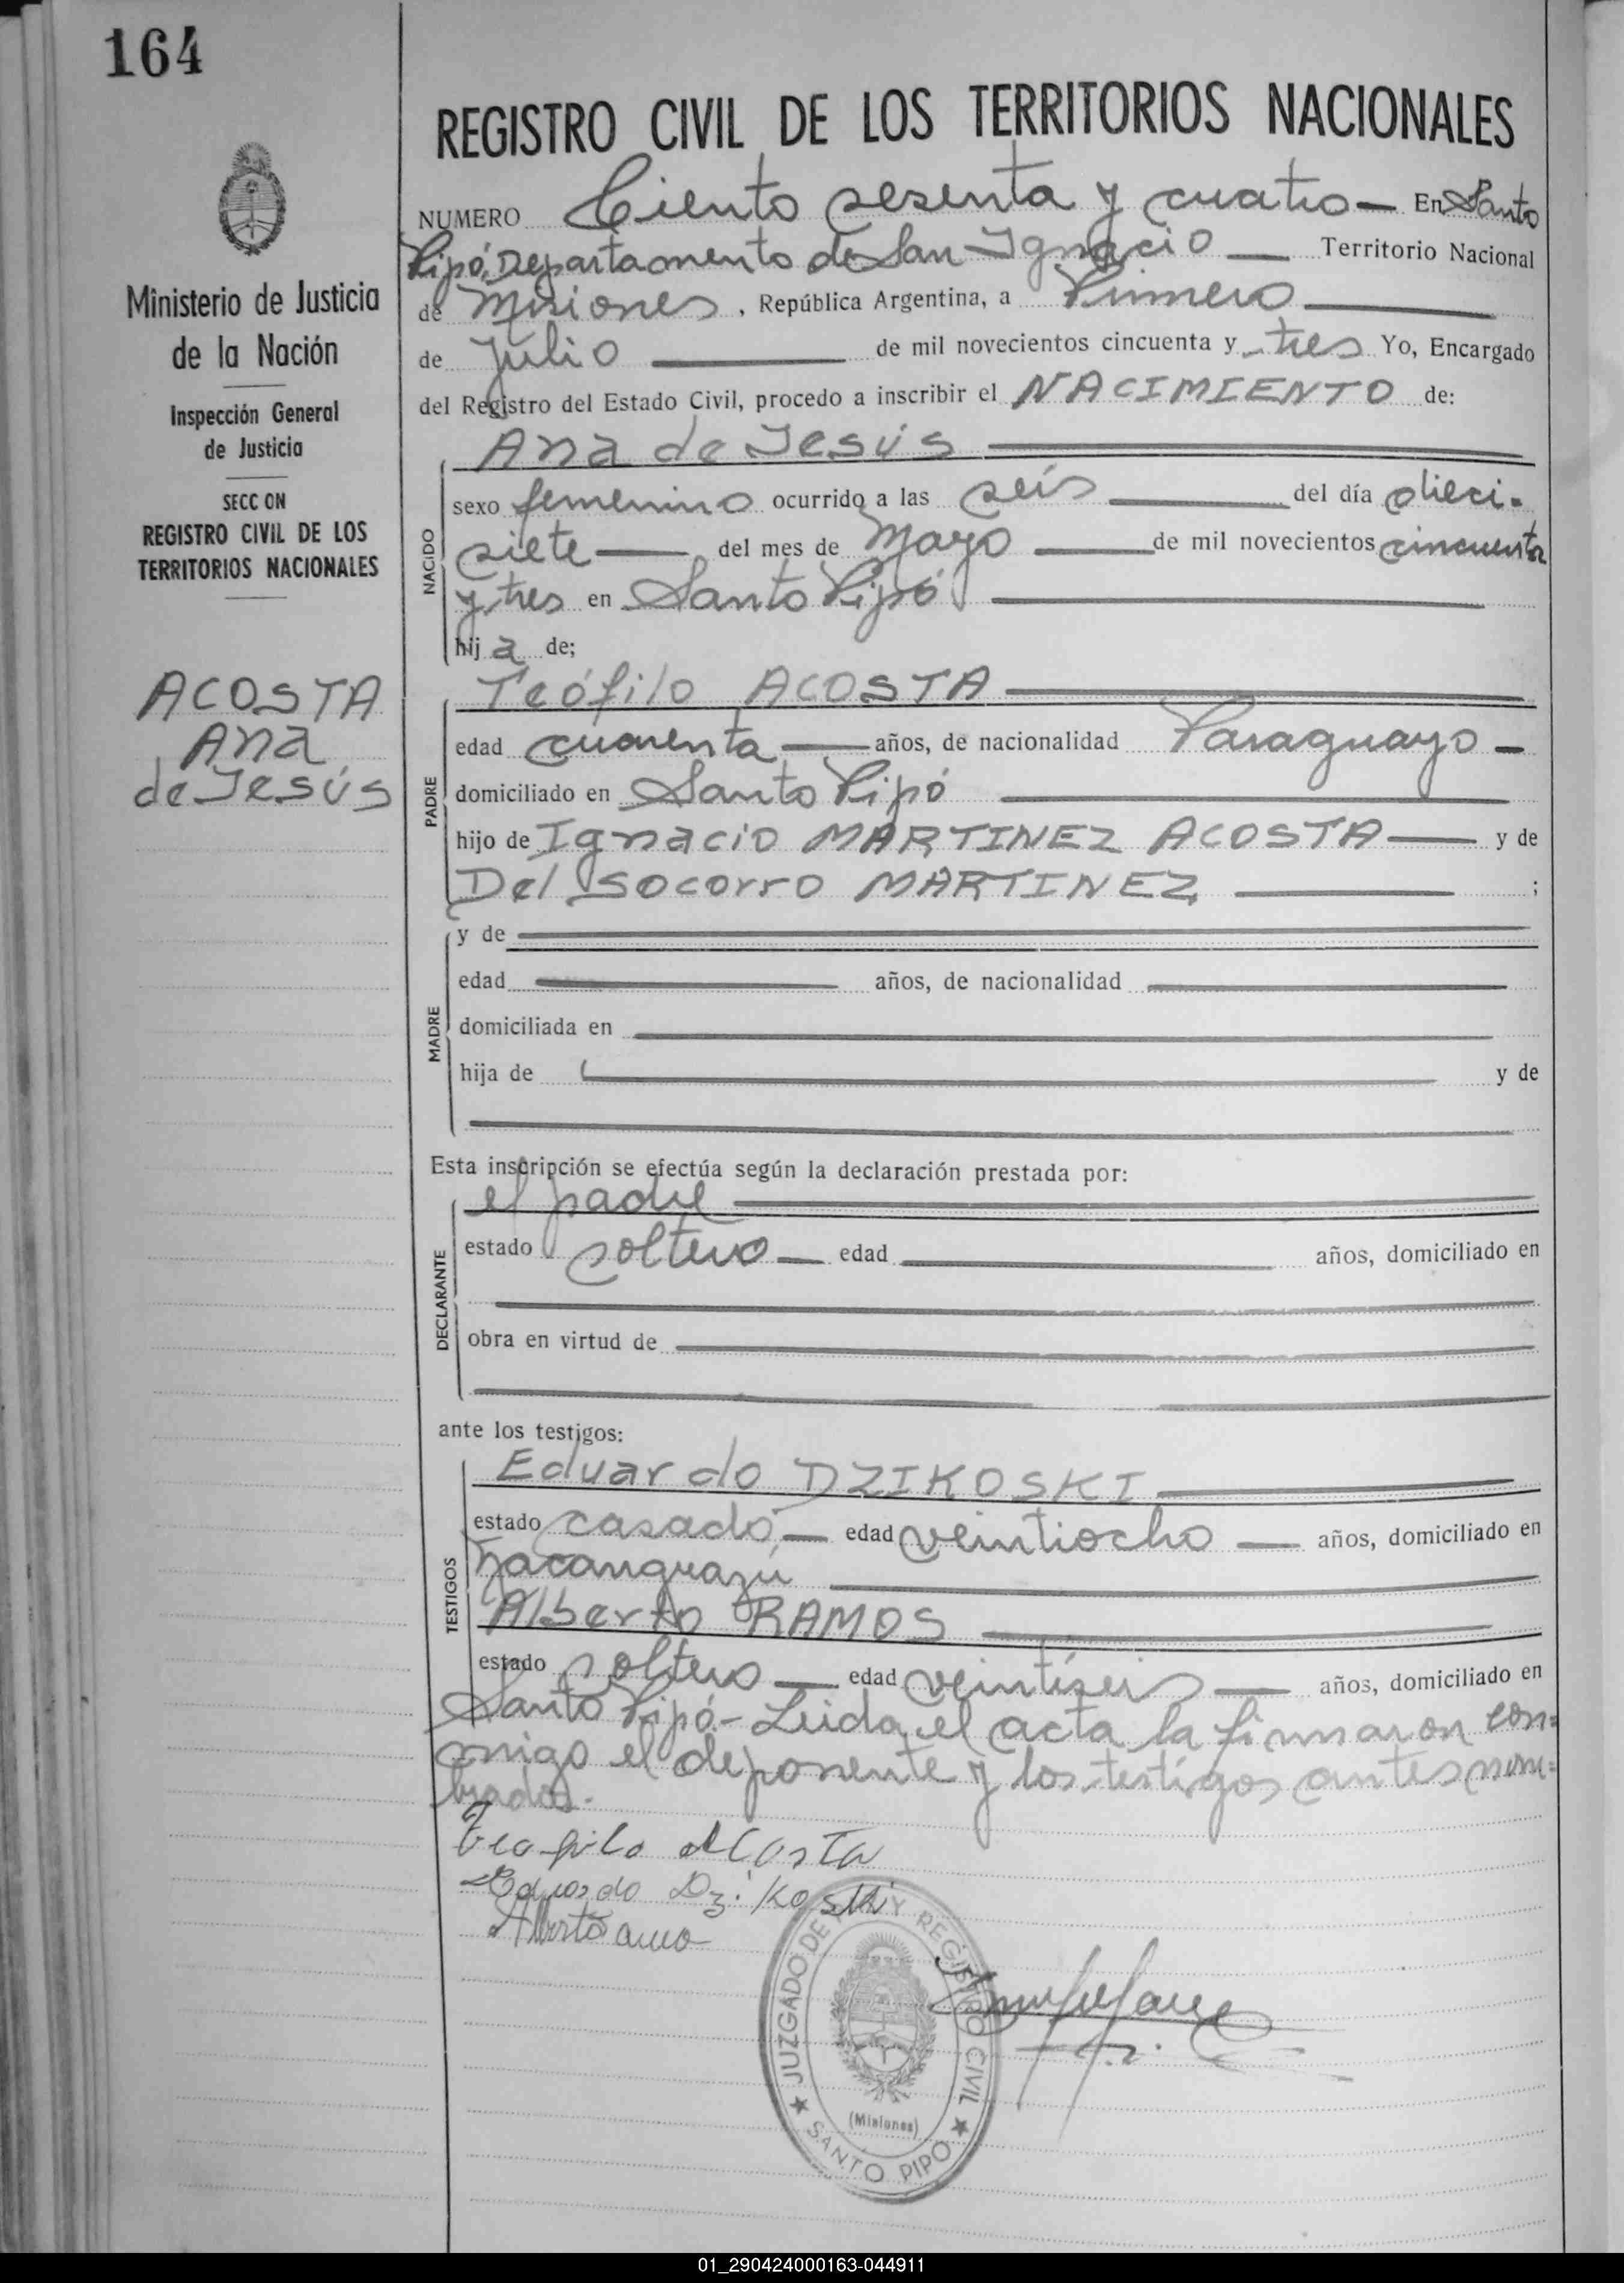 164
REGISTRO CIVIL DE LOS TERRITORIOS NACIONALES
NUMERO Ciento sesenta y cuatro — En Santo
Pipó, Departamento de San Ignacio — Territorio Nacional
de Misiones, República Argentina, a Primero
de Julio de mil novecientos cincuenta y tres Yo, Encargado
del Registro del Estado Civil, procedo a inscribir el NACIMIENTO de:
Ana de Jesús
NACIDO
sexo femenino ocurrido a las seis del día dieci-
siete — del mes de Mayo de mil novecientos cincuenta
y tres en Santo Pipó
hija de;
Teófilo ACOSTA
PADRE
edad cuarenta — años, de nacionalidad Paraguayo —
domiciliado en Santo Pipó
hijo de Ignacio MARTINEZ ACOSTA — y de
Del Socorro MARTINEZ ;
MADRE
y de
edad años, de nacionalidad
domiciliada en
hija de y de
Esta inscripción se efectúa según la declaración prestada por:
el padre
DECLARANTE
estado soltero — edad años, domiciliado en
obra en virtud de
ante los testigos:
Eduardo DZIKOSKI
TESTIGOS
estado casado — edad veintiocho — años, domiciliado en
Ñacanguazú
Alberto RAMOS
estado soltero — edad veintiseis — años, domiciliado en
Santo Pipó.- Leida el acta la firmaron con=
migo el deponente y los testigos antes nom=
brados.-
Teofilo Acosta
Eduardo Dzikoski
Alberto
JUZGADO DE PAZ Y REGISTRO CIVIL
(Misiones)
SANTO PIPO
Ministerio de Justicia
de la Nación
Inspección General
de Justicia
SECC ON
REGISTRO CIVIL DE LOS
TERRITORIOS NACIONALES
ACOSTA
Ana
de Jesús
01_290424000163-044911